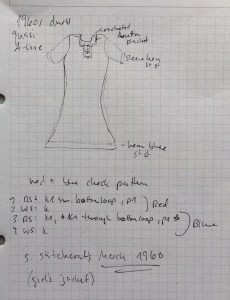 1960s dress
A-line
crocheted
button
placket
sleeve hem
st st
hem blue
st st
red + blue check pattern
1 RS: K1 thr. bottom loop, p1
2 WS: K
Red
3 RS: K1, * K1 through bottom loop, p1 *
4 WS: K
Blue
s. stitchcraft March 1960
(girl's jacket)